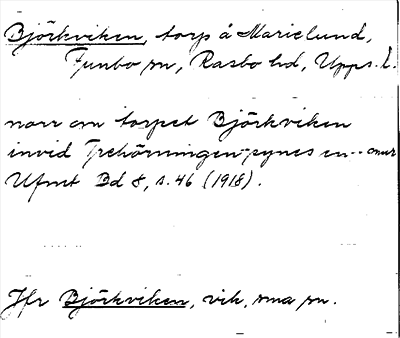 Björkviken, torp å Marielund,
Funbo sn, Rasbo hd, Upps. l.
norr om torpet Björkviken
invid Trehörningen synes en --- mur
Ufmt Bd 8, s. 46 (1918).
Jfr Björkviken, vik, sma sn.